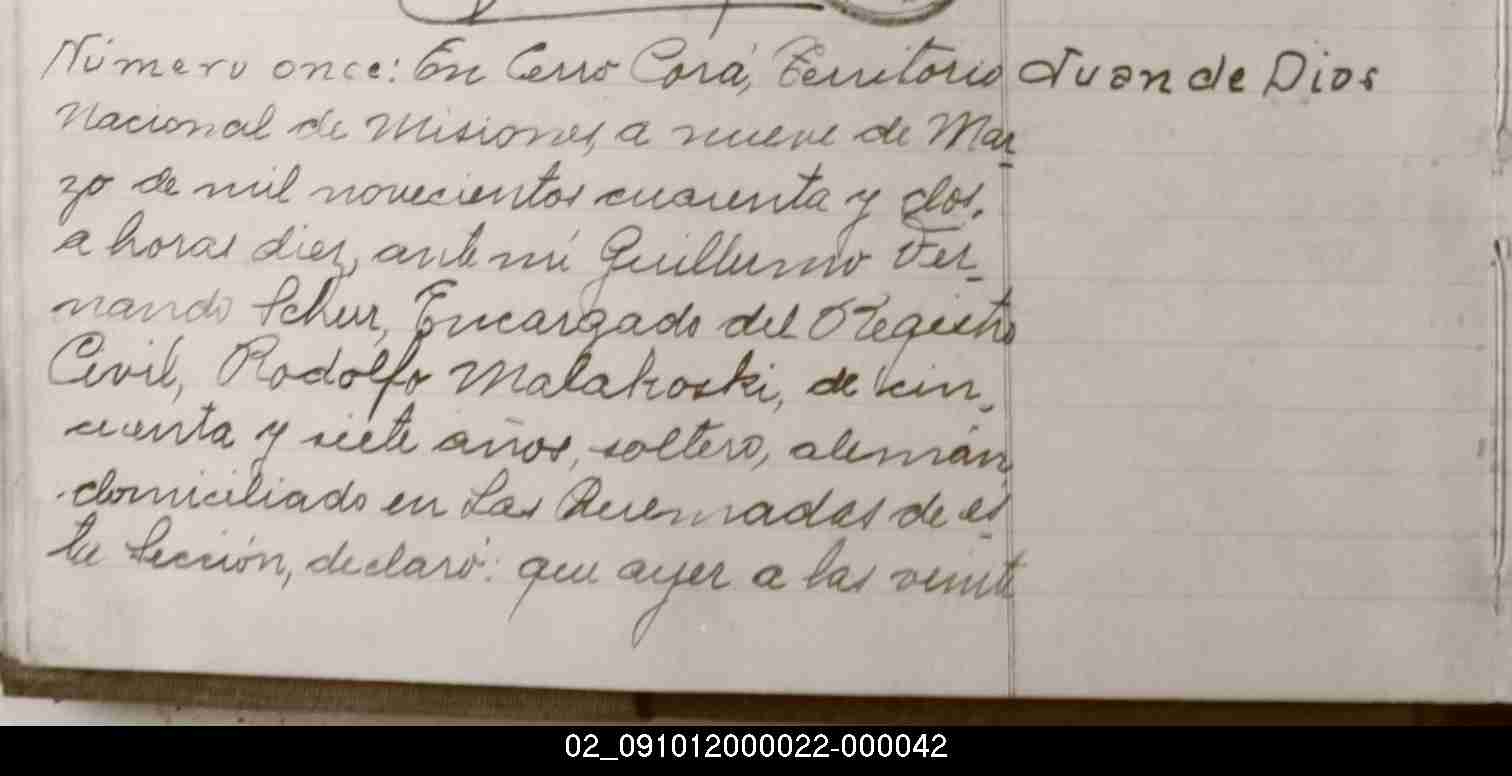 Número once: En Cerro Corá, Territorio Juan de Dios
Nacional de Misiones, a nueve de Mar-
zo de mil novecientos cuarenta y dos,
a horas diez, ante mí Guillermo Fer-
nando Schur, Encargado del Registro
Civil, Rodolfo Malakoski, de cin-
cuenta y siete años, soltero, alemán,
domiciliado en Las Quemadas de es-
ta Sección, declaró: que ayer a las veinte
02_091012000022-000042